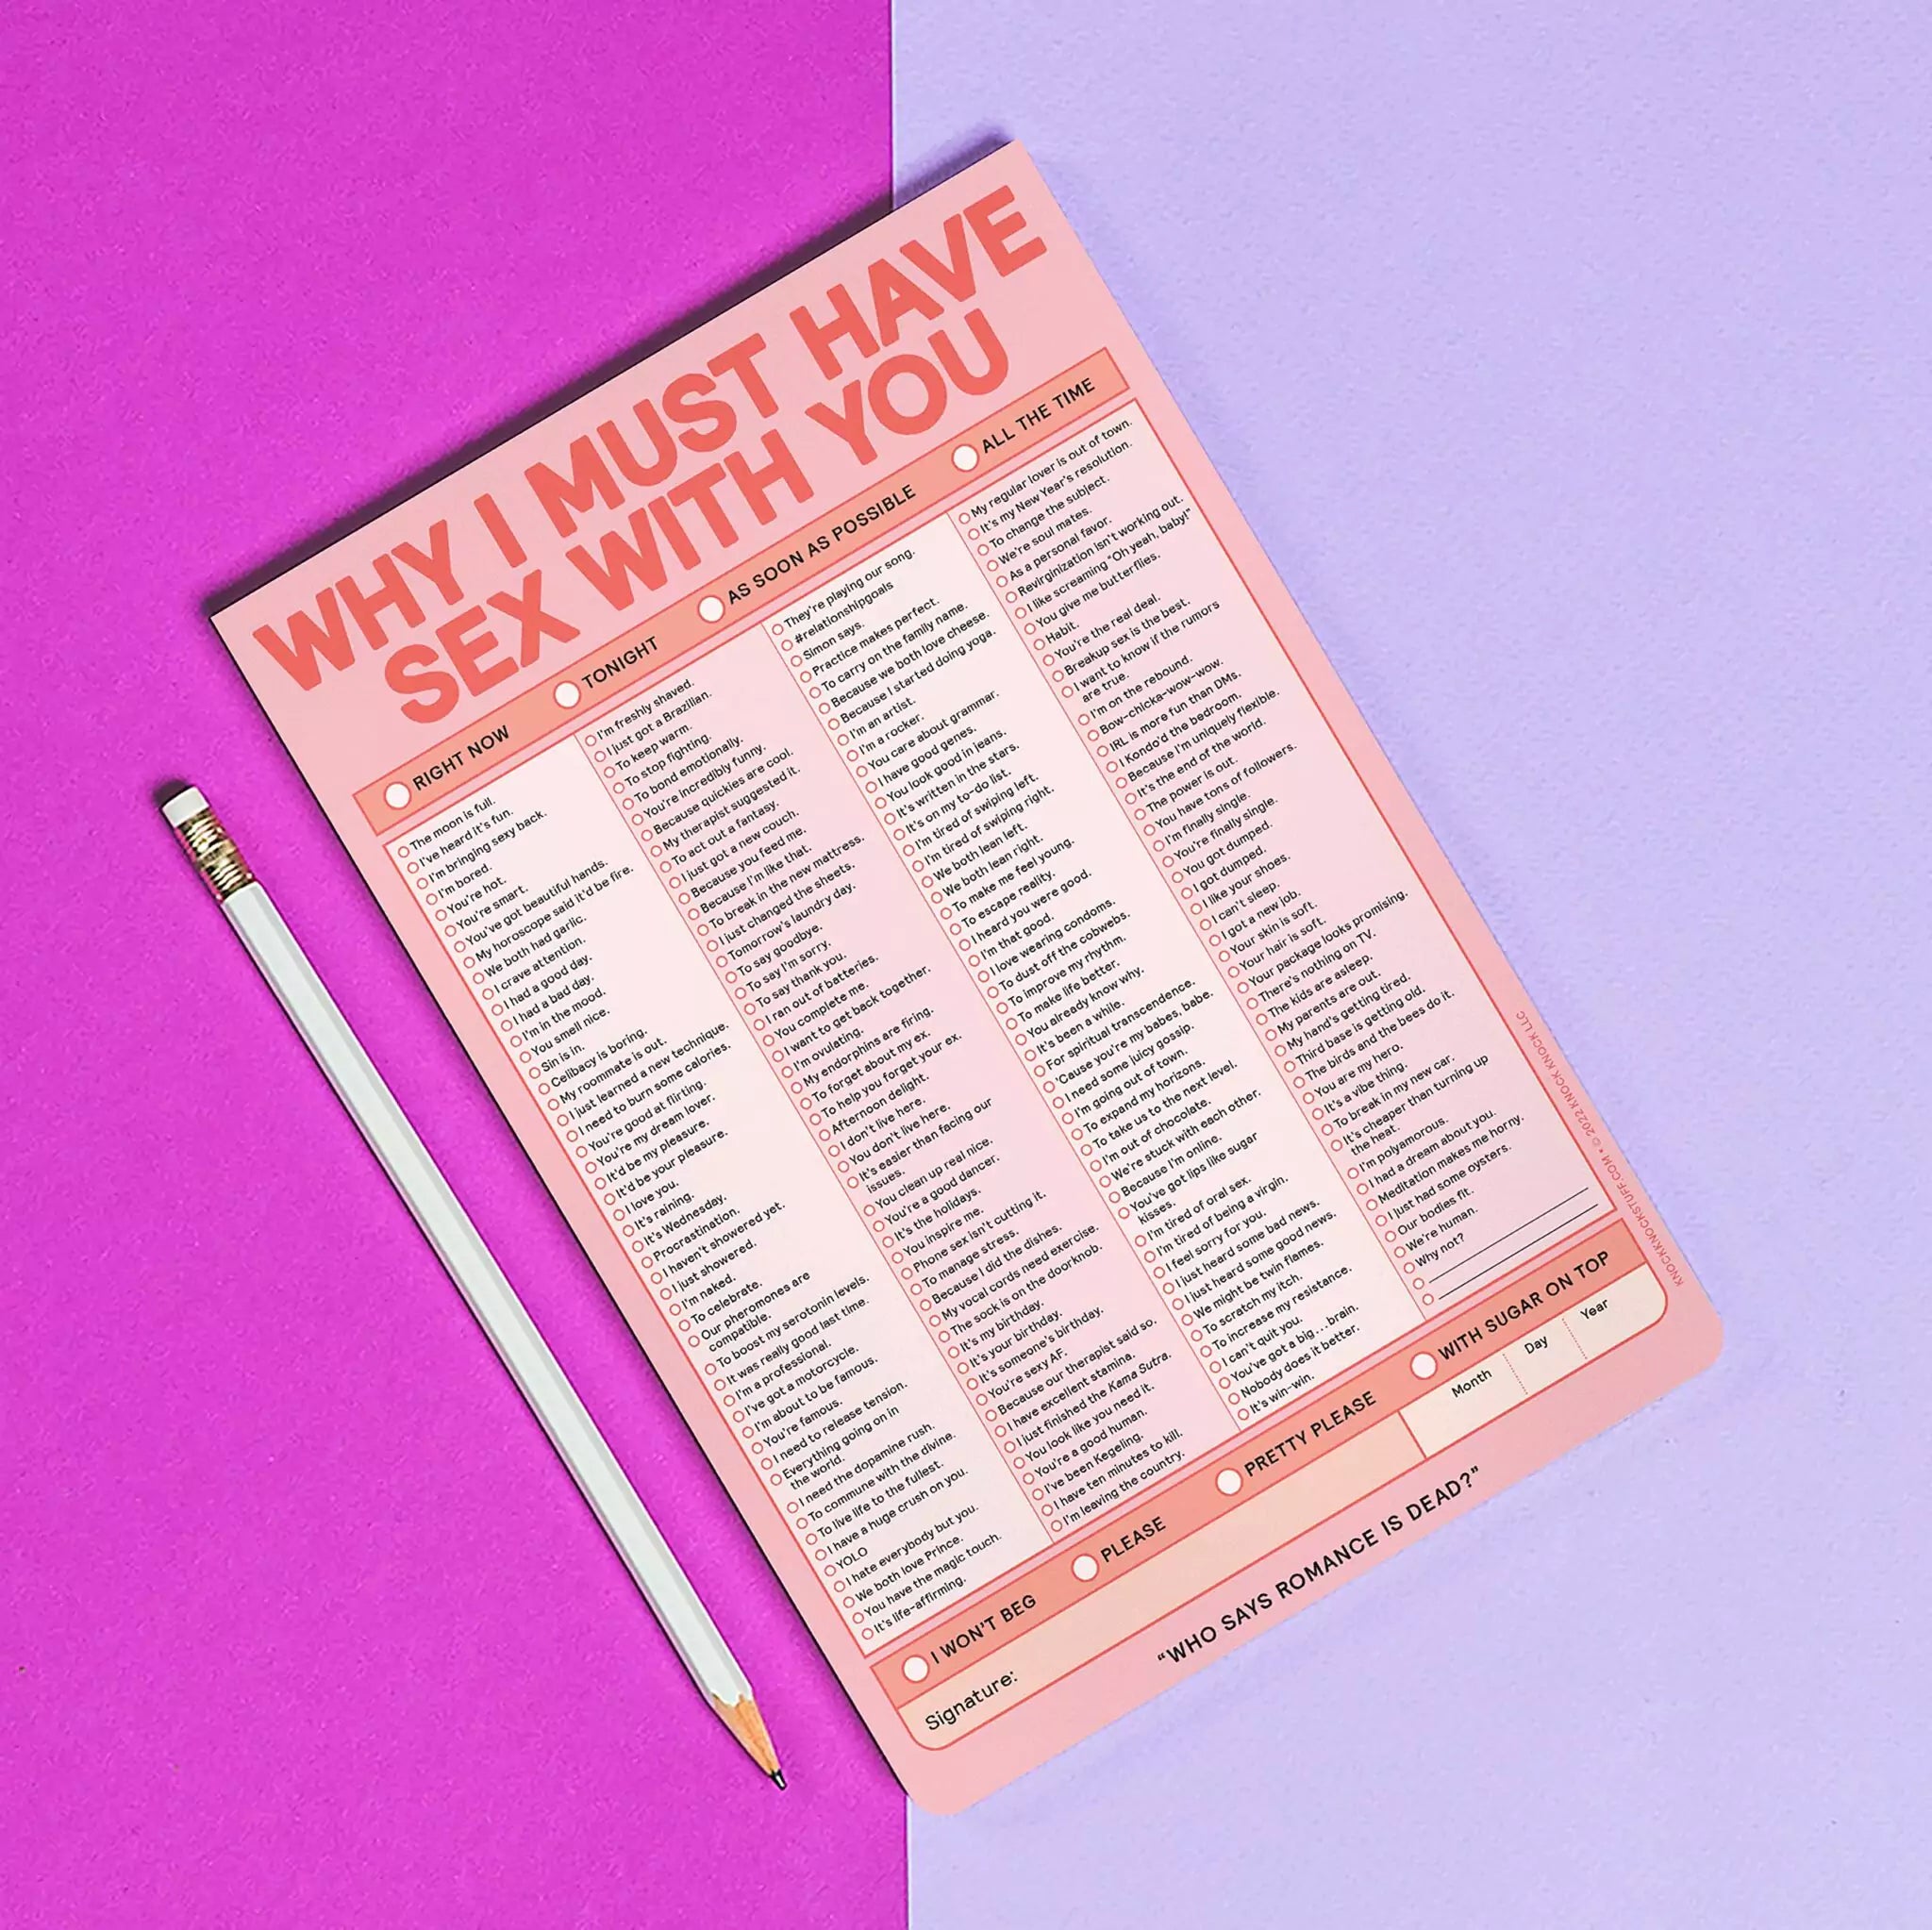 WHY I MUST HAVE
SEX WITH YOU
RIGHT NOW
TONIGHT
AS SOON AS POSSIBLE
ALL THE TIME
The moon is full.
I've heard it's fun.
I'm bringing sexy back.
I'm bored.
You're hot.
You're smart.
You've got beautiful hands.
My horoscope said it'd be fire.
We both had garlic.
I crave attention.
I had a good day.
I had a bad day.
I'm in the mood.
You smell nice.
Sin is in.
Celibacy is boring.
My roommate is out.
I just learned a new technique.
I need to burn some calories.
You're good at flirting.
You're my dream lover.
It'd be my pleasure.
It'd be your pleasure.
I love you.
It's raining.
It's Wednesday.
Procrastination.
I haven't showered yet.
I just showered.
I'm naked.
To celebrate.
Our pheromones are
compatible.
To boost my serotonin levels.
It was really good last time.
I'm a professional.
I've got a motorcycle.
I'm about to be famous.
You're famous.
I need to release tension.
Everything going on in
the world.
I need the dopamine rush.
To commune with the divine.
To live life to the fullest.
I have a huge crush on you.
YOLO
I hate everybody but you.
We both love Prince.
You have the magic touch.
It's life-affirming.
I'm freshly shaved.
I just got a Brazilian.
To keep warm.
To stop fighting.
To bond emotionally.
You're incredibly funny.
Because quickies are cool.
My therapist suggested it.
To act out a fantasy.
I just got a new couch.
Because you feed me.
Because I'm like that.
To break in the new mattress.
I just changed the sheets.
Tomorrow's laundry day.
To say goodbye.
To say I'm sorry.
To say thank you.
I ran out of batteries.
You complete me.
I want to get back together.
I'm ovulating.
My endorphins are firing.
To forget about my ex.
To help you forget your ex.
Afternoon delight.
I don't live here.
You don't live here.
It's easier than facing our
issues.
You clean up real nice.
You're a good dancer.
It's the holidays.
You inspire me.
Phone sex isn't cutting it.
To manage stress.
Because I did the dishes.
My vocal cords need exercise.
The sock is on the doorknob.
It's my birthday.
It's your birthday.
It's someone's birthday.
You're sexy AF.
Because our therapist said so.
I have excellent stamina.
I just finished the Kama Sutra.
You look like you need it.
You're a good human.
I've been Kegeling.
I have ten minutes to kill.
I'm leaving the country.
They're playing our song.
#relationshipgoals
Simon says.
Practice makes perfect.
To carry on the family name.
Because we both love cheese.
Because I started doing yoga.
I'm an artist.
I'm a rocker.
You care about grammar.
I have good genes.
You look good in jeans.
It's written in the stars.
It's on my to-do list.
I'm tired of swiping left.
I'm tired of swiping right.
We both lean left.
We both lean right.
To make me feel young.
To escape reality.
I heard you were good.
I'm that good.
I love wearing condoms.
To dust off the cobwebs.
To improve my rhythm.
To make life better.
You already know why.
It's been a while.
For spiritual transcendence.
'Cause you're my babes, babe.
I need some juicy gossip.
I'm going out of town.
To expand my horizons.
To take us to the next level.
I'm out of chocolate.
We're stuck with each other.
Because I'm online.
You've got lips like sugar
kisses.
I'm tired of oral sex.
I'm tired of being a virgin.
I feel sorry for you.
I just heard some bad news.
I just heard some good news.
We might be twin flames.
To scratch my itch.
To increase my resistance.
I can't quit you.
You've got a big...brain.
Nobody does it better.
It's win-win.
My regular lover is out of town.
It's my New Year's resolution.
To change the subject.
We're soul mates.
As a personal favor.
Revirginization isn't working out.
I like screaming "Oh yeah, baby!"
You give me butterflies.
Habit.
You're the real deal.
Breakup sex is the best.
I want to know if the rumors
are true.
I'm on the rebound.
Bow-chicka-wow-wow.
IRL is more fun than DMs.
I Kondo'd the bedroom.
Because I'm uniquely flexible.
It's the end of the world.
The power is out.
You have tons of followers.
I'm finally single.
You're finally single.
You got dumped.
I got dumped.
I like your shoes.
I can't sleep.
I got a new job.
Your skin is soft.
Your hair is soft.
Your package looks promising.
There's nothing on TV.
The kids are asleep.
My parents are out.
My hand's getting tired.
Third base is getting old.
The birds and the bees do it.
You are my hero.
It's a vibe thing.
To break in my new car.
It's cheaper than turning up
the heat.
I'm polyamorous.
I had a dream about you.
Meditation makes me horny.
I just had some oysters.
Our bodies fit.
We're human.
Why not?
I WON'T BEG
PLEASE
PRETTY PLEASE
WITH SUGAR ON TOP
Signature:
Month
Day
Year
"WHO SAYS ROMANCE IS DEAD?"
KNOCKKNOCKSTUFF.COM • © 2022 KNOCK KNOCK LLC